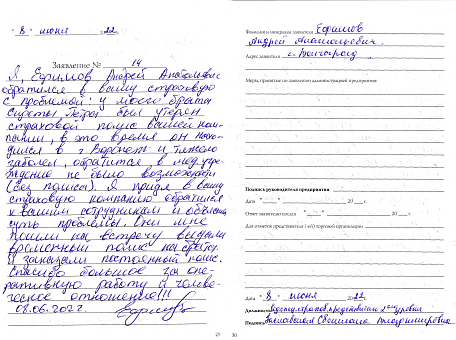 " 8 " июня 22
Заявление № 14
Я, Ефимов Андрей Анатольевич
обратился в вашу страховую
с проблемой: у моего брата
Петра был утерян
страховой полис вашей ком-
пании, в это время он нахо-
дился в г. Воронеж и тяжело
заболел, обратится в мед. учре-
ждение не было возможности
(без полиса). Я пришёл в вашу
страховую компанию обратился
к вашим сотрудникам и объяснил
суть проблемы. Они мне
пошли на встречу выдали
временный полис на брата
и заказали постоянный полис.
Спасибо большое за опе-
ративную работу и челове-
ческое отношение!!!
08.06.2022.
29
Фамилия и инициалы заявителя Ефимов
Андрей Анатольевич
Адрес заявителя г. Волгоград
Меры, принятые по заявлению администрацией предприятия:
Подпись руководителя предприятия
Дата "___" 20 г.
Ответ заявителю послан "___" 20 г.
Для отметки представителя (-ей) торговой организации
Дата " 8 " июня 2022 г.
Должность
Подпись Светлана Владимировна
30